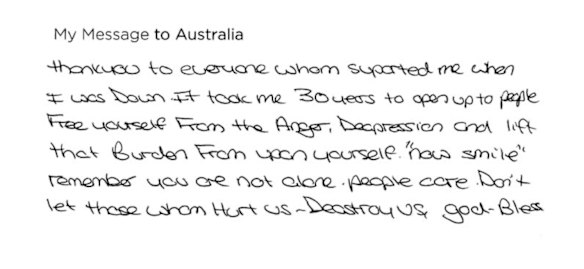 My Message to Australia
thankyou to everyone whom suported me when
I was Down It took me 30 yers to open up to people
Free yourself From the Anger, Deapression and lift
that Burden From upon yourself. "now smile"
remember you are not alone. people care. Don't
let those whom Hurt us - Deastroy US, god-Bless